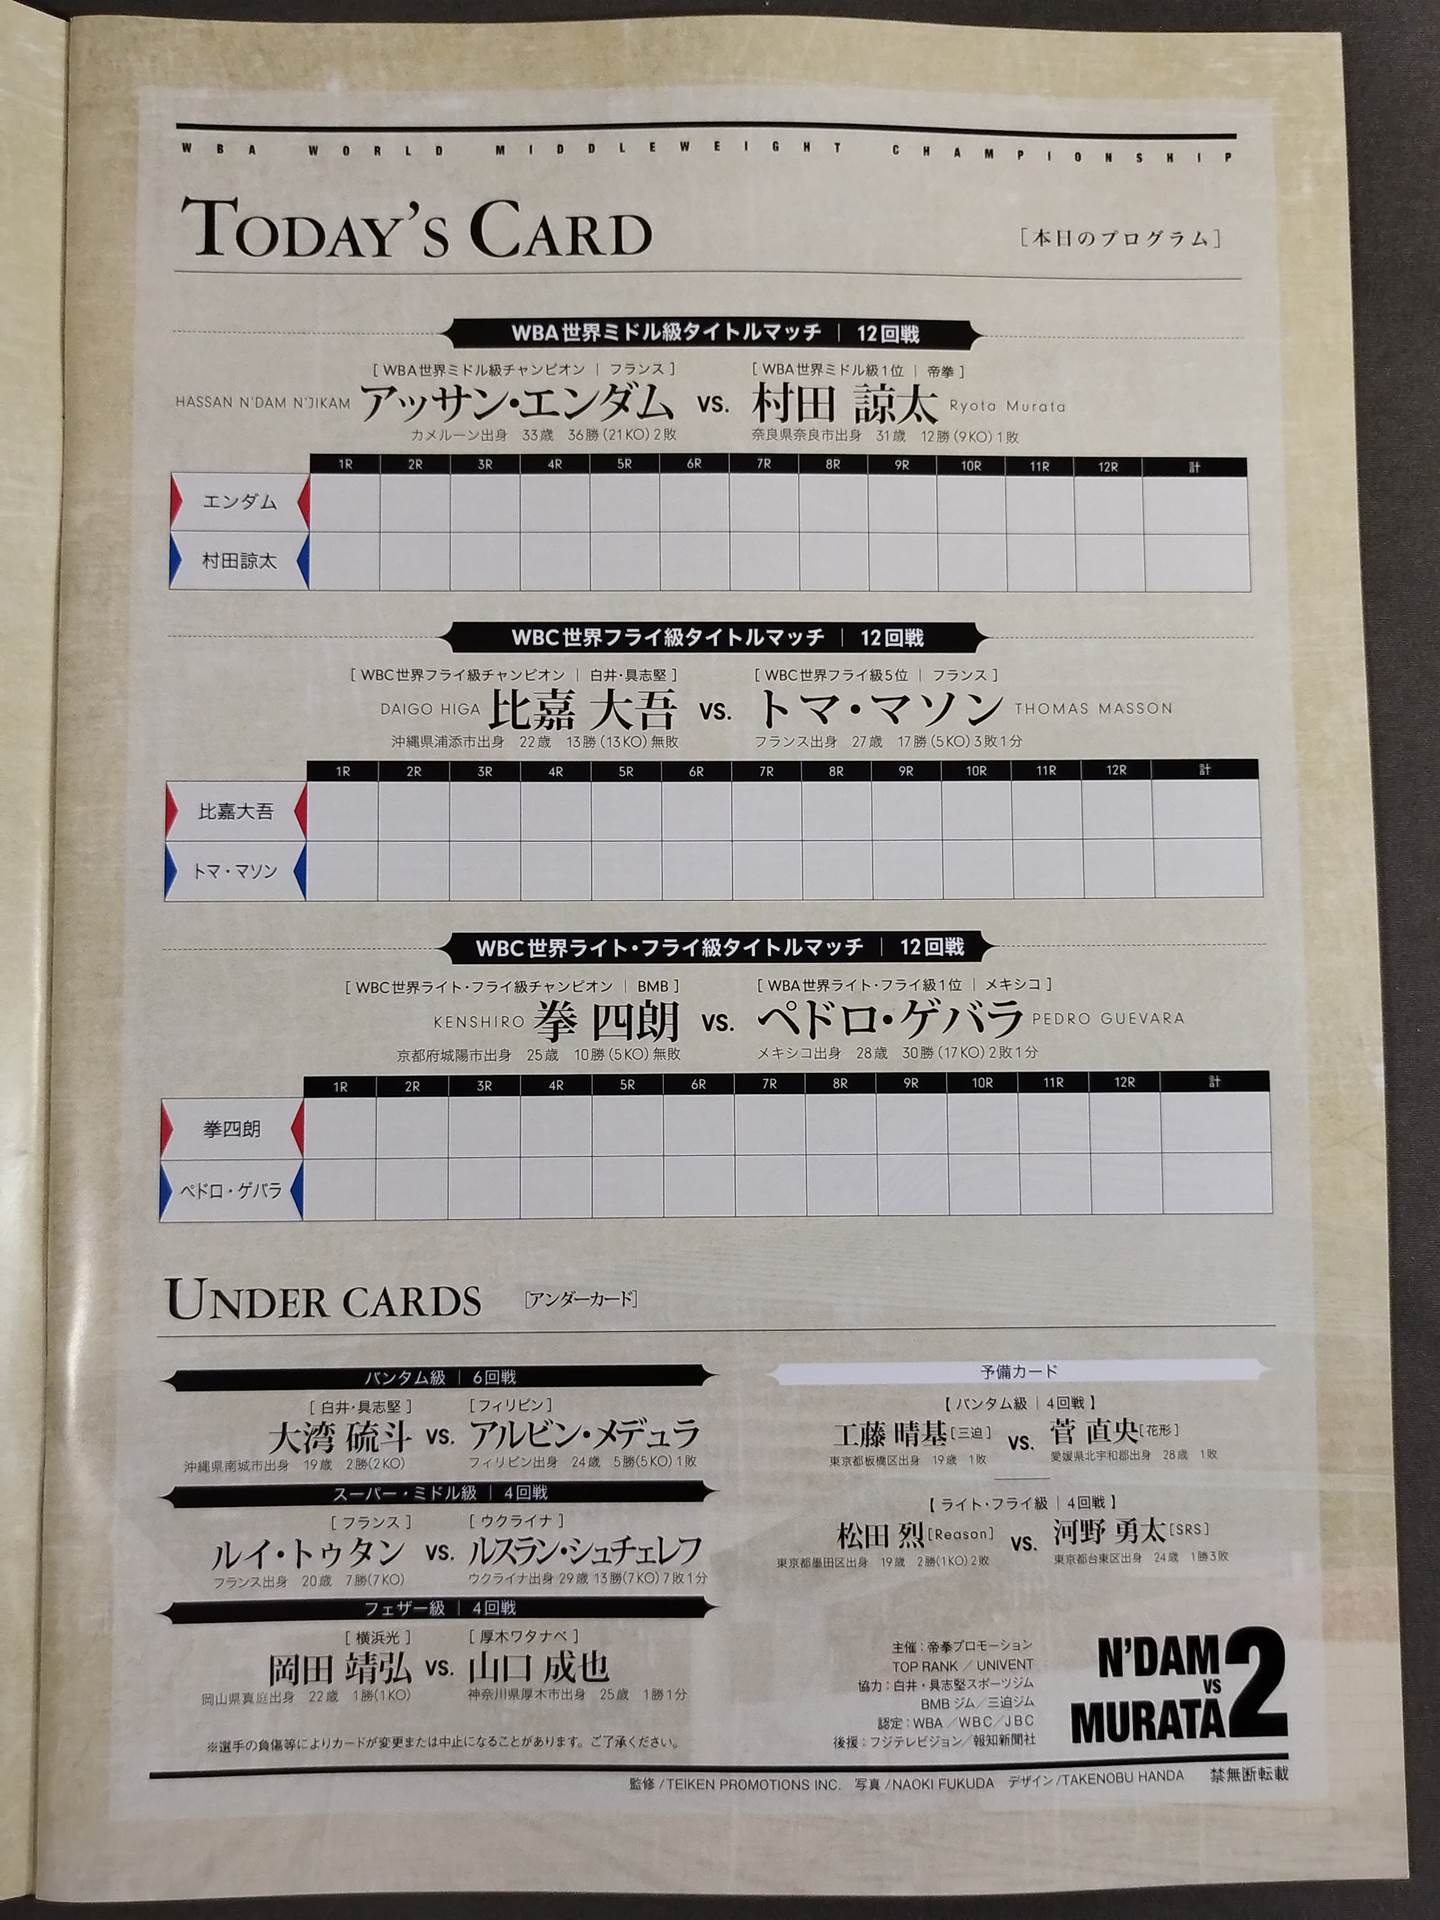 WBA WORLD MIDDLEWEIGHT CHAMPIONSHIP
TODAY'S CARD
［本日のプログラム］
WBA世界ミドル級タイトルマッチ｜12回戦
［WBA世界ミドル級チャンピオン｜フランス］
HASSAN N'DAM N'JIKAM アッサン・エンダム
カメルーン出身 33歳 36勝(21KO)2敗
vs.
［WBA世界ミドル級1位｜帝拳］
村田 諒太 Ryota Murata
奈良県奈良市出身 31歳 12勝(9KO)1敗
1R 2R 3R 4R 5R 6R 7R 8R 9R 10R 11R 12R 計
エンダム
村田諒太
WBC世界フライ級タイトルマッチ｜12回戦
［WBC世界フライ級チャンピオン｜白井・具志堅］
DAIGO HIGA 比嘉 大吾
沖縄県浦添市出身 22歳 13勝(13KO)無敗
vs.
［WBC世界フライ級5位｜フランス］
トマ・マソン THOMAS MASSON
フランス出身 27歳 17勝(5KO)3敗1分
1R 2R 3R 4R 5R 6R 7R 8R 9R 10R 11R 12R 計
比嘉大吾
トマ・マソン
WBC世界ライト・フライ級タイトルマッチ｜12回戦
［WBC世界ライト・フライ級チャンピオン｜BMB］
KENSHIRO 拳 四朗
京都府城陽市出身 25歳 10勝(5KO)無敗
vs.
［WBA世界ライト・フライ級1位｜メキシコ］
ペドロ・ゲバラ PEDRO GUEVARA
メキシコ出身 28歳 30勝(17KO)2敗1分
1R 2R 3R 4R 5R 6R 7R 8R 9R 10R 11R 12R 計
拳四朗
ペドロ・ゲバラ
UNDER CARDS ［アンダーカード］
バンタム級｜6回戦
［白井・具志堅］ ［フィリピン］
大湾 硫斗 vs. アルビン・メデュラ
沖縄県南城市出身 19歳 2勝(2KO) フィリピン出身 24歳 5勝(5KO)1敗
スーパー・ミドル級｜4回戦
［フランス］ ［ウクライナ］
ルイ・トゥタン vs. ルスラン・シュチェレフ
フランス出身 20歳 7勝(7KO) ウクライナ出身 29歳 13勝(7KO)7敗1分
フェザー級｜4回戦
［横浜光］ ［厚木ワタナベ］
岡田 靖弘 vs. 山口 成也
岡山県真庭出身 22歳 1勝(1KO) 神奈川県厚木市出身 25歳 1勝1分
※選手の負傷等によりカードが変更または中止になることがあります。ご了承ください。
予備カード
【バンタム級｜4回戦】
工藤 晴基［三迫］ vs. 菅 直央［花形］
東京都板橋区出身 19歳 1敗 愛媛県北宇和郡出身 28歳 1敗
【ライト・フライ級｜4回戦】
松田 烈［Reason］ vs. 河野 勇太［SRS］
東京都墨田区出身 19歳 2勝(1KO)2敗 東京都台東区出身 24歳 1勝3敗
主催：帝拳プロモーション
TOP RANK／UNIVENT
協力：白井・具志堅スポーツジム
BMBジム／三迫ジム
認定：WBA／WBC／JBC
後援：フジテレビジョン／報知新聞社
N'DAM VS MURATA 2
監修/TEIKEN PROMOTIONS INC. 写真/NAOKI FUKUDA デザイン/TAKENOBU HANDA 禁無断転載